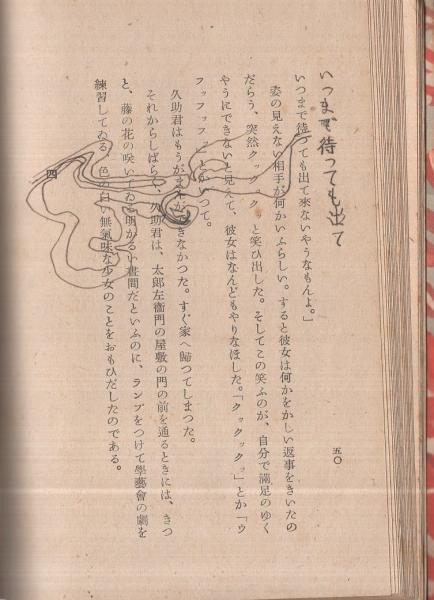 いつまで待っても出て
いつまで待つても出て來ないやうなもんよ。」
姿の見えない相手が何かいふらしい。すると彼女は何かをかしい返事をきいたの
だらう、突然クックックッと笑ひ出した。そしてこの笑ふのが、自分で滿足のゆく
やうにできないと見えて、彼女はなんどもやりなほした。「クックックッ」とか「ウ
フッフッフッ」とかいつて。
久助君はもうがまんができなかつた。すぐ家へ歸つてしまつた。
それからしばらく、久助君は、太郎左衞門の屋敷の門の前を通るときには、きつ
と、藤の花の咲いてゐる明かるい晝間だといふのに、ランプをつけて學藝會の劇を
練習してゐる、色の白い無氣味な少女のことをおもひだしたのである。
四
五〇